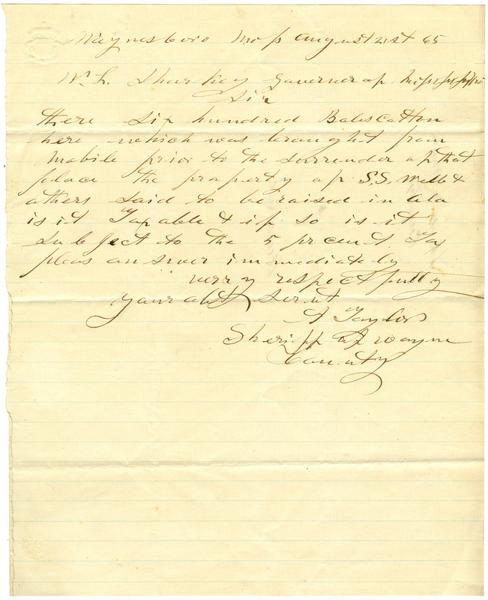 Waynesboro Msp August 21st 65
W. L. Sharkey Governor of Mississippi
Sir
there six hundred Bales Cotton
here which was brought from
Mobile prior to the surrender of that
place the property of S.S. Webb &
others said to be raised in Ala
is it Taxable & if so is it
Subject to the 5 pr cent Tax
pleas answer immediately
verry respectfully
your obt servt
A Taylor
Sheriff of Wayne
County